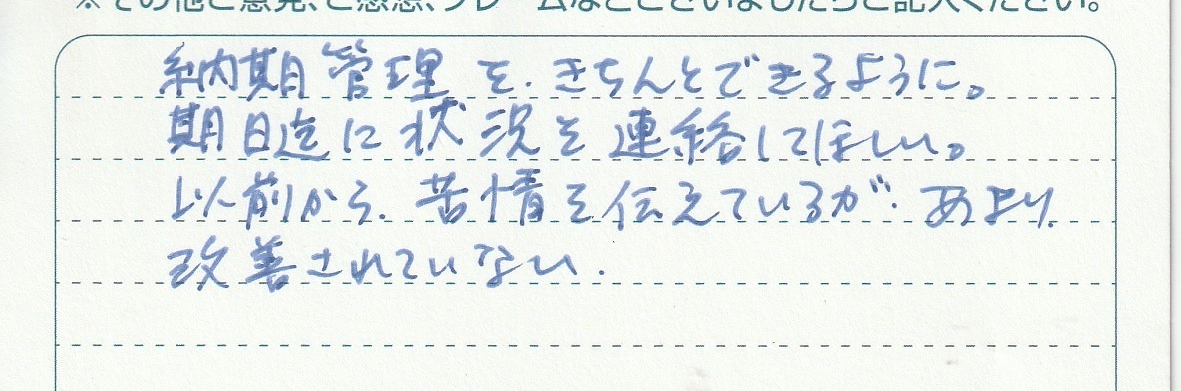 ※その他ご意見、ご感想、クレームなどございましたらご記入ください。
納期管理を、きちんとできるように。
期日迄に状況を連絡してほしい。
以前から、苦情を伝えているが、あまり、
改善されていない。